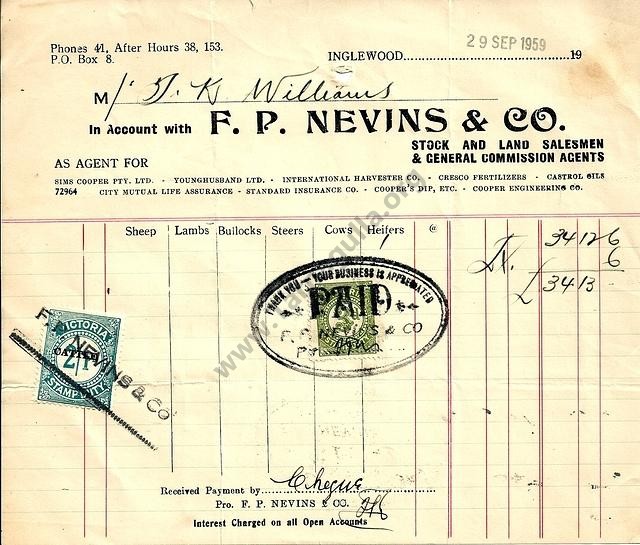 Phones 41, After Hours 38, 153.
P.O. Box 8.
INGLEWOOD 29 SEP 1959 19
M/ J. K. Williams
In Account with F. P. NEVINS & CO.
STOCK AND LAND SALESMEN
& GENERAL COMMISSION AGENTS
AS AGENT FOR
SIMS COOPER PTY. LTD. - YOUNGHUSBAND LTD. - INTERNATIONAL HARVESTER CO. - CRESCO FERTILIZERS - CASTROL OILS
72964 CITY MUTUAL LIFE ASSURANCE - STANDARD INSURANCE CO. - COOPER'S DIP, ETC. - COOPER ENGINEERING CO.
Sheep Lambs Bullocks Steers Cows Heifers @
1
34 12 6
6
£ 34 13 -
THANK YOU — YOUR BUSINESS IS APPRECIATED
PAID
F. P. NEVINS & CO
VICTORIA
CATTLE
2/1
STAMP DUTY
F. P. NEVINS & CO
Received Payment by Cheque
Pro. F. P. NEVINS & CO.
Interest Charged on all Open Accounts